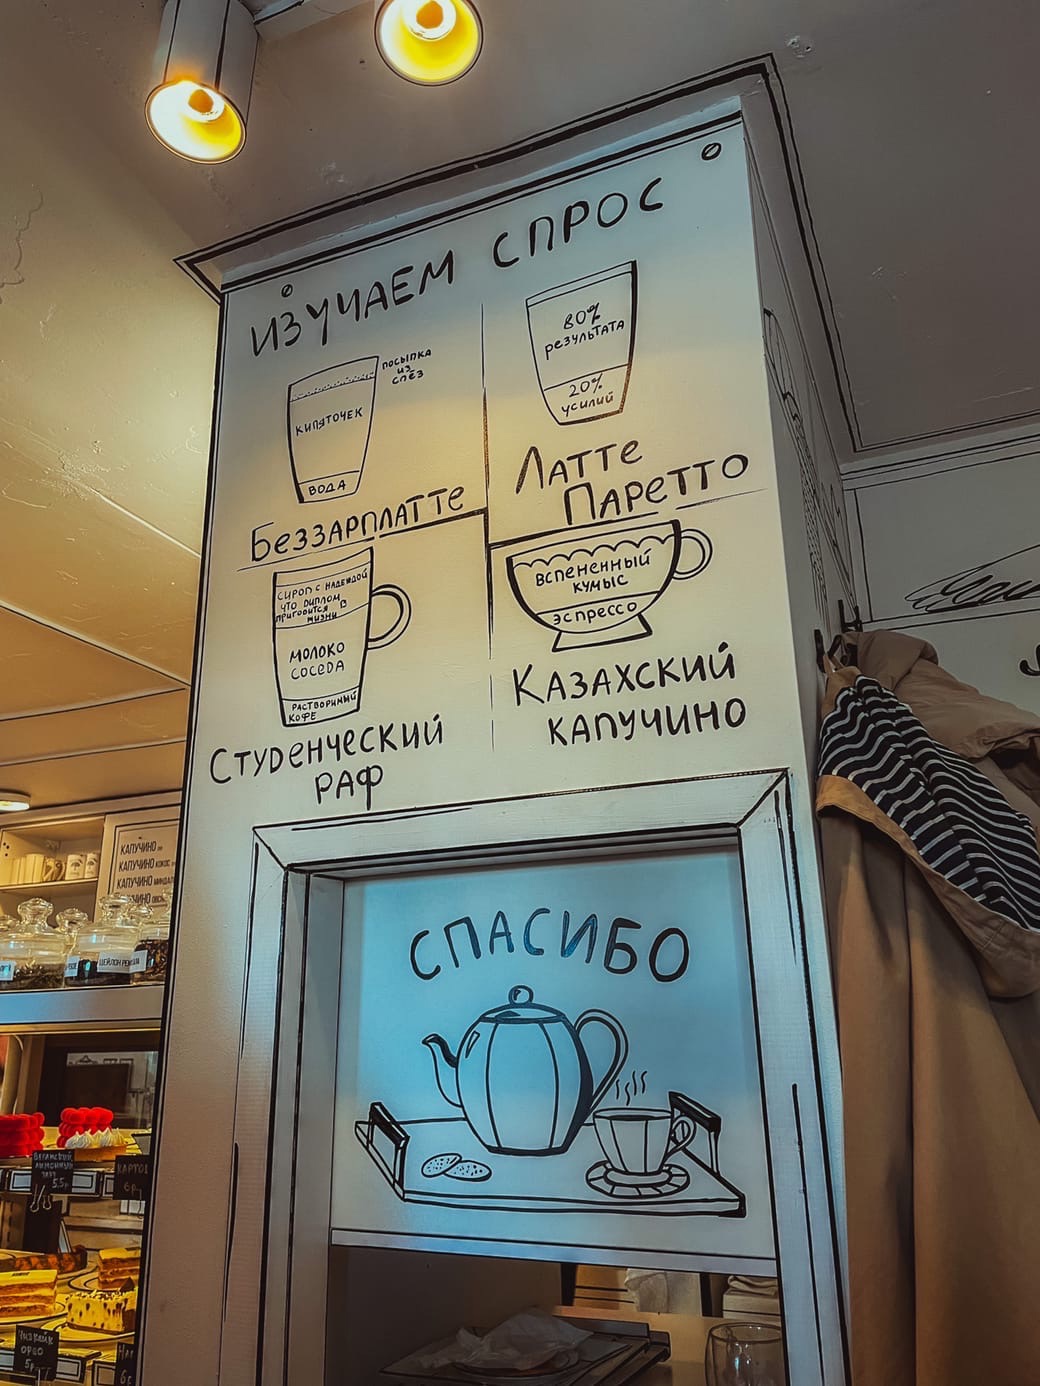 ИЗУЧАЕМ СПРОС
ПОСЫПКА
ИЗ
СЛЁЗ
КИПЯТОЧЕК
ВОДА
БЕЗЗАРПЛАТТЕ
80%
РЕЗУЛЬТАТА
20%
УСИЛИЙ
ЛАТТЕ
ПАРЕТТО
СИРОП С НАДЕЖДОЙ
ЧТО ДИПЛОМ
ПРИГОДИТСЯ В
ЖИЗНИ
МОЛОКО
СОСЕДА
РАСТВОРИМЫЙ
КОФЕ
СТУДЕНЧЕСКИЙ
РАФ
ВСПЕНЕННЫЙ
КУМЫС
ЭСПРЕССО
КАЗАХСКИЙ
КАПУЧИНО
СПАСИБО
КАПУЧИНО
КАПУЧИНО КОКОС
КАПУЧИНО
ЛИМОННЫЙ
ТАРТ
5.5р
6р
ЧИЗКЕЙК
ОРЕО
5р